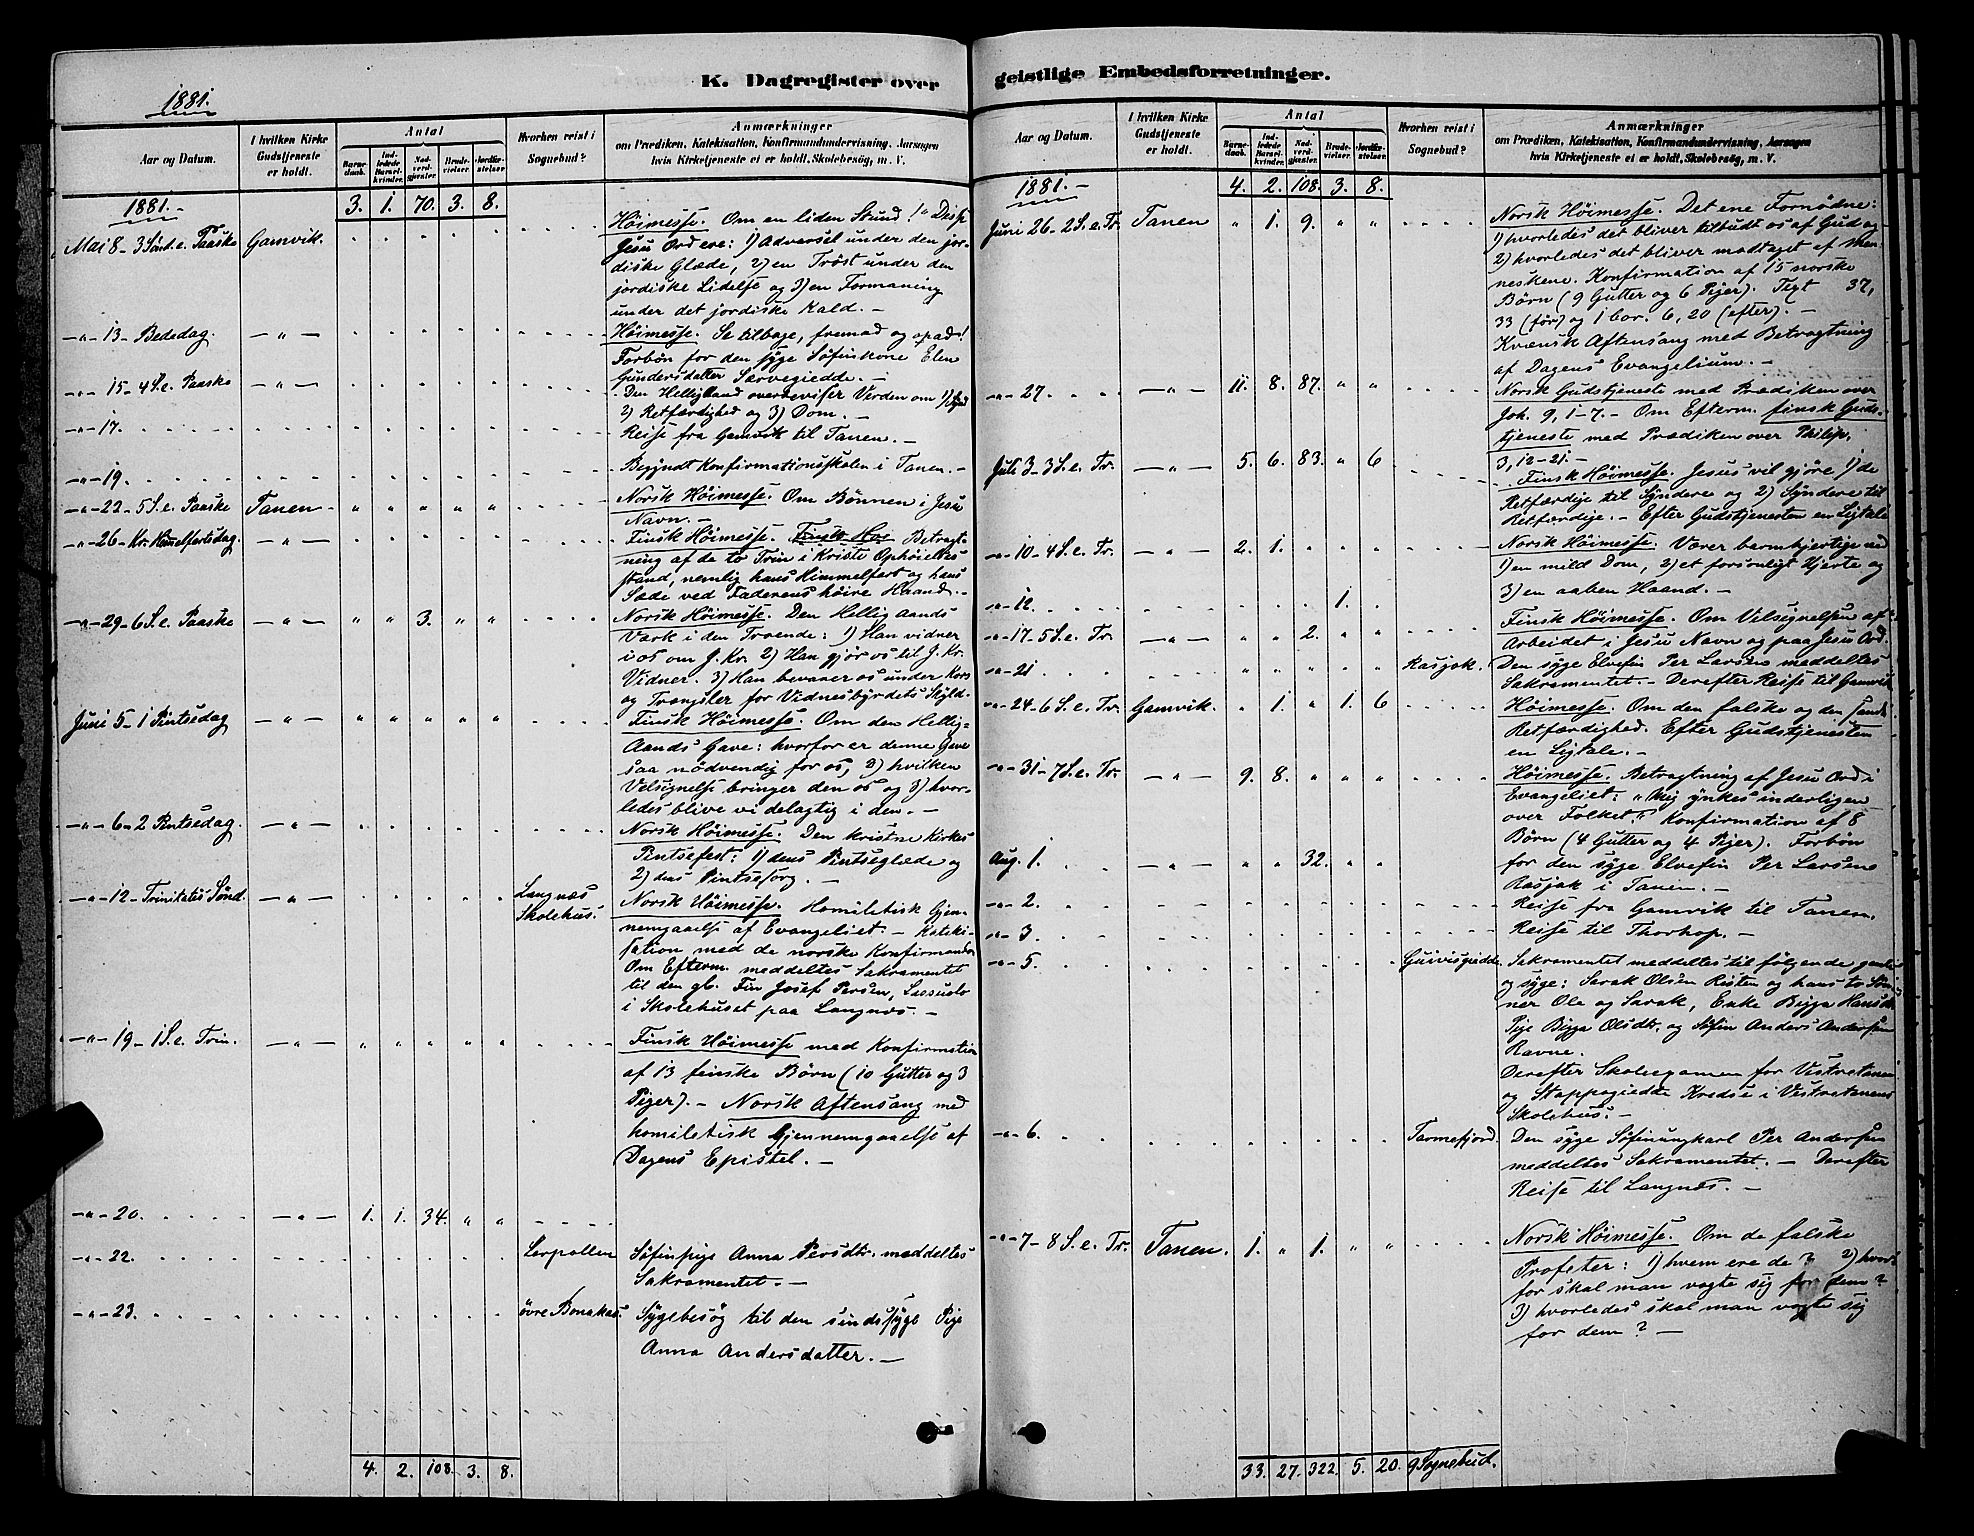 K. Dagregister over
1881.
Aar og Datum.
I hvilken Kirke Gudstjeneste er holdt.
Antal
Barnedaab.
Indledede Barselkvinder.
Nadverdgjæster.
Brudevielser.
Jordfæstelser.
Hvorhen reist i Sognebud?
Anmærkninger
om Prædiken, Katekisation, Konfirmandundervisning, Aarsagen
hvis Kirketjeneste ei er holdt, Skolebesög, m. V.
1881.-
3. 1. 70. 3. 8.
Mai 8 - 3 Sönd. e. Paaske Gamvik.
Höimesse. Om en liden Stund! "Disse
Jesu Ord ere: 1) Advarsel under den jor-
diske Glæde, 2) en Tröst under den
jordiske Lidelse og 3) en Formaning
under det jordiske Kald. -
-"- 13 - Bededag. -"-
Höimesse. Se tilbage, fremad og opad!
Forbön for den syge Söfinkone Elen
Gundersdatter
-"- 15 - 4 S. e. Paaske -"-
Den Helligaand overbeviser Verden om 1) Synd
2) Retfærdighed og 3) Dom. -
-"- 17.
Reise fra Gamvik til Tanen. -
-"- 19.
Begyndt Konfirmationsskolen i Tanen. -
-"- 22 - 5 S. e. Paaske Tanen - " " " " "
Norsk Höimesse. Om Bönnen i Jesu
Navn. -
-"- 26 - Kr. Himmelfartsdag. -"-
Finsk Höimesse. Finsk Höi Betragt-
ning af de to Trin i Kristi Ophöielses
stand, nemlig hans Himmelfart og hans
Sæde ved Faderens höire Haand. -
-"- 29 - 6 S. e. Paaske -"- " " 3. " "
Norsk Höimesse. Den Hellig Aands
Værk i den Troende: 1) Han vidner
i os om J. Kr. 2) Han gjör os til J. Kr.
Vidner. 3) Han bevarer os under Kors
og Trængsler for Vidnesbyrdets Skyld.
Juni 5 - 1 Pintsedag -"- " " " " "
Finsk Höimesse. Om den Hellig-
Aands Gave: hvorfor er denne Gave
saa nödvendig for os, 2) hvilken
Velsignelse bringer den os og 3) hvor-
ledes blive vi delagtig i den. -
-"- 6 - 2 Pintsedag. -"-
Norsk Höimesse. Den kristne Kirkes
Pintsefest: 1) dens Pintseglæde og
2) dens Pintsesorg. -
-"- 12 - Trinitatis Sönd. -"- Langnæs Skolehus.
Norsk Höimesse. Homiletisk Gjen-
nemgaaelse af Evangeliet. - Kateki-
sation med de norske Konfirmander
Om Efterm. meddeltes Sakramentet
til den gl. Fin Josef Persen,
i Skolehuset paa Langnæs. -
-"- 19 - 1 S. e. Trin. -"- " " " " "
Finsk Höimesse med Konfirmation
af 13 finske Börn (10 Gutter og 3
Piger). - Norsk Aftensang med
homiletisk Gjennemgaaelse af
Dagens Epistel. -
-"- 20. -"- 1. 1. 34. " "
-"- 22. Lerpollen
Söfinpige Anna Persdtr. meddeltes
Sakramentet. -
-"- 23. övre Bonakas.
Sygebesög til den sindssyge Pige
Anna Andersdatter. -
4. 2. 108. 3. 8.
geistlige Embedsforretninger.
Aar og Datum.
I hvilken Kirke Gudstjeneste er holdt.
Antal
Barnedaab.
Indledede Barselkvinder.
Nadverdgjæster.
Brudevielser.
Jordfæstelser.
Hvorhen reist i Sognebud?
Anmærkninger
om Prædiken, Katekisation, Konfirmandundervisning, Aarsagen
hvis Kirketjeneste ei er holdt, Skolebesög, m. V.
1881. -
4. 2. 108. 3. 8.
Juni 26 - 2 S. e. Tr. Tanen " 1. 9. " "
Norsk Höimesse. Det ene Fornödne:
1) hvorledes det bliver tilbudt os af Gud og
2) hvorledes det bliver modtaget af Men-
neskene. Konfirmation af 15 norske
Börn (9 Gutter og 6 Piger). Text 37,
33 (för) og 1 Cor. 6, 20 (efter). -
Kvænsk Aftensang med Betragtning
af Dagens Evangelium. -
-"- 27. -"- 11. 8. 87. " "
Norsk Gudstjeneste med Prædiken over
Joh. 9, 1-7. - Om Efterm. finsk Guds-
tjeneste med Prædiken over Philip.
3, 12-21. -
Juli 3 - 3 S. e. Tr. -"- 5. 6. 83. " 6
Finsk Höimesse. Jesus vil gjöre 1) de
Retfærdige til Syndere og 2) Syndere til
Retfærdige. - Efter Gudstjenesten en Ligtale
-"- 10 - 4 S. e. Tr. -"- 2. 1.
Norsk Höimesse: Værer barmhjertige med
1) en mild Dom, 2) et forsonligt Hjerte og
3) en aaben Haand. -
-"- 12. 1.
-"- 17 - 5 S. e. Tr. -"- " " 2. " "
Finsk Höimesse. Om Velsignelsen af
Arbeidet i Jesu Navn og paa Jesu Ord.
-"- 21 " " " " " Rasjok.
Den syge Elvefin Per Larsen meddeltes
Sakramentet. - Derefter Reise til Gamvik
-"- 24 - 6 S. e. Tr. Gamvik. " 1. " 1. 6
Höimesse. Om den falske og den sande
Retfærdighed. Efter Gudstjenesten
en Ligtale. -
-"- 31 - 7 S. e. Tr. -"- 9. 8. " " "
Höimesse. Betragtning af Jesu Ord i
Evangeliet: "Mig ynkes inderligen
over Folket". Konfirmation af 8
Börn (4 Gutter og 4 Piger). Forbön
for den syge Elvefin Per Larsen
Rasjok i Tanen. -
Aug. 1. -"- " " 32. " "
-"- 2.
Reise fra Gamvik til Tanen.
-"- 3
Reise til Thorhop. -
-"- 5. Guivisgiedde.
Sakramentet meddeltes til fölgende gamle
og syge: Sarak Olsen Risten og hans to Søn-
ner Ole og Sarak, Enke Bigga Hansdtr.
Pige Bigga Olsdtr. og Söfin Anders Andersen
Ravne.
Derefter Skoleexamen for Vestretanen
og Stappogiedde Kredse i Vestretanens
Skolehus. -
-"- 6. Tarmefjord.
Den syge Söfinungkarl Per Andersen
meddeltes Sakramentet. - Derefter
Reise til Langnæs. -
-"- 7 - 8 S. e. Tr. Tanen. 1. " 1. " "
Norsk Höimesse. Om de falske
Profeter: 1) hvem ere de? 2) hvor-
for skal man vogte sig for dem?
3) hvorledes skal man vogte sig
for dem? -
33. 27. 322. 5. 20. 9 Sognebud.